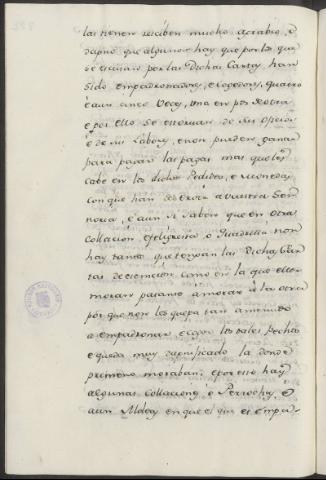 las tienen reciben mucho agrabio, e
dapno que algunos hay que por los que
se escusan por las Dichas Cartas han
sido empadronadores, e Cogedores, quatro
e aun cinco veces, una en pos de otra
e por ello se estorvan de sus oficios
e de sus Labores, e non pueden ganar
para pagar las pagas mas que les
cabe en los dichos Pedidos, e Monedas
con que han de servir a vuestra Sen-
noria, e aun si saben que en otra
Collacion, efeligresia o Quadrilla non
hay tantos que tengan las Dichas Car-
tas de esempcion, como en la que ellos
moran pasanse a morar a las otras
por que non les quepa tan amenudo
a empadronar e coger los tales Pechos
e queda muy dapnificado la donde
primero moraban, e por esto hay
algunas Collaciones e Perrochias, e
aun Aldeas en que el que es empa-